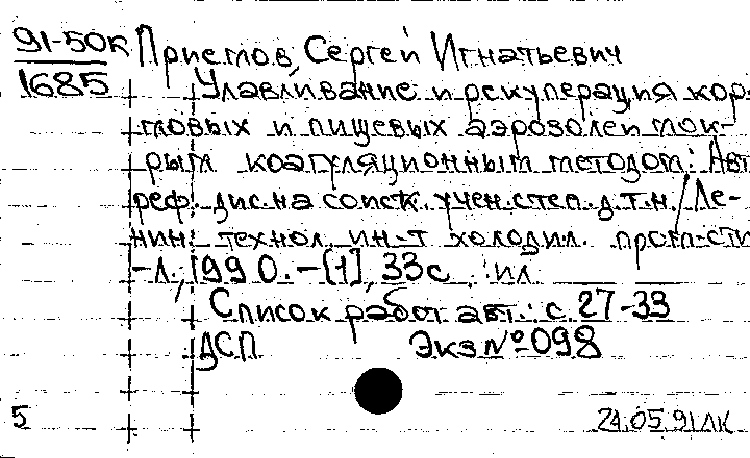 91-50к Приемов, Сергей Игнатьевич
1685 Улавливание и рекуперация кор-
мовых и пищевых аэрозолей мок-
рым коагуляционным методом: Авт
реф. дис. на соиск. учен. степ. д.т.н./Ле-
нин. технол. ин-т холодил. пром-сти
-Л., 1990.-[1], 33с. : ил
Список работ авт.: с. 27-33
ДСП Экз №098
5 24.05.91 ЛК